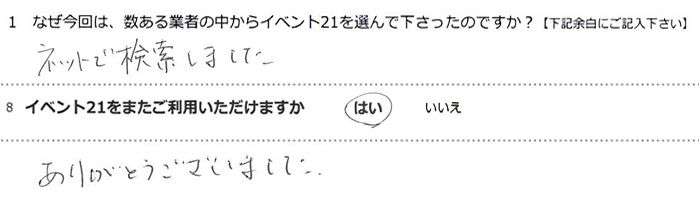 1 なぜ今回は、数ある業者の中からイベント21を選んで下さったのですか？【下記余白にご記入下さい】
ネットで検索しました
8 イベント21をまたご利用いただけますか はい いいえ
ありがとうございました.